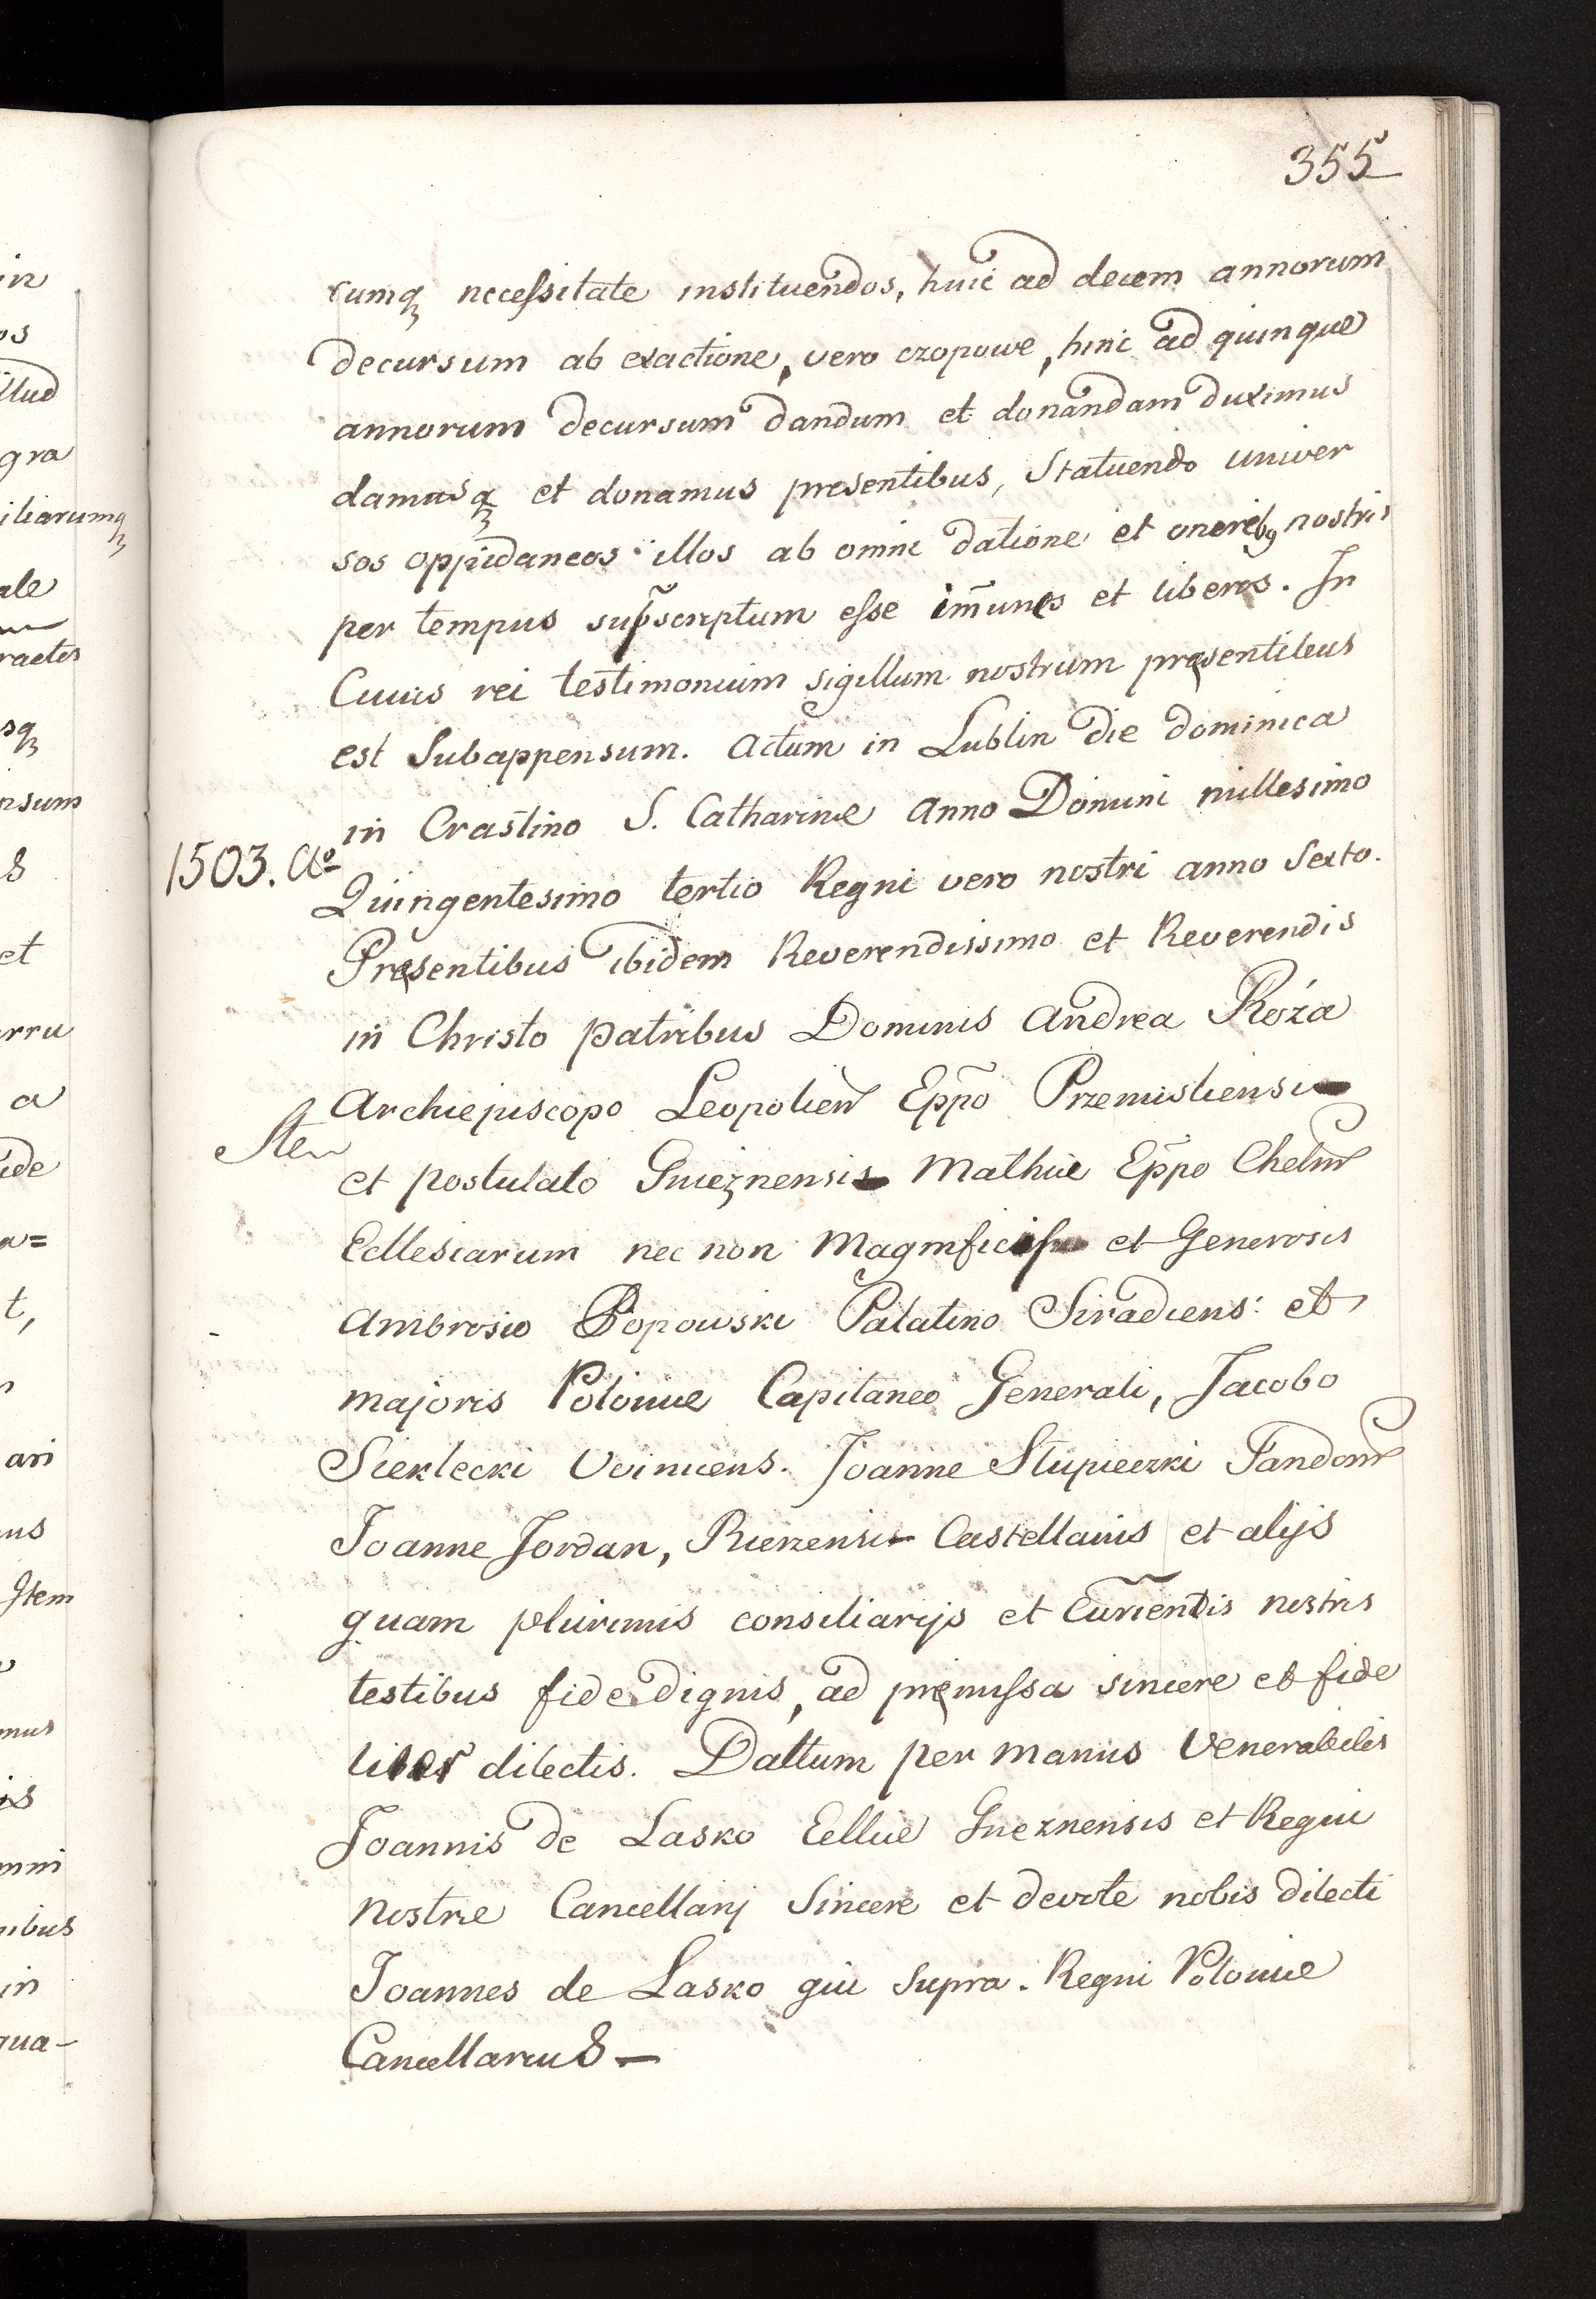 355
rumq₃ necessitate instituendos, huic ad decem annorum
decursum ab exactione, vero czopowe, hinc ad quinque
annorum decursum dandum et donandam duximus
damusq₃ et donamus presentibus, Statuendo univer
sos oppidaneos illos ab omni datione et oneribꝯ nostris
per tempus sup̃scriptum esse im̃unes et liberos. In
Cuius rei testimonium sigillum nostrum pręsentibus
est Subappensum. Actum in Lublin die dominica
in Crastino S. Catharinæ Anno Domini millesimo
1503. Aº
Quingentesimo tertio Regni vero nostri anno Sexto.
Pręsentibus ibidem Reverendissimo et Reverendis
in Christo patribus Dominis Andrea Róża
Archiepiscopo Leopolien Eppõ Przemisliensi
et postulato Gnieznensi Mathiæ Eppõ Chelm
Ecllesiarum nec non Magnificis et Generosis
Ambrosio Popowski Palatino Siradiens: et
majoris Poloniæ Capitaneo Generali, Jacobo
Sieklecki Voiniciens. Joanne Slupieczki
Joanne Jordan, Castellanis et alijs
quam plurimis consiliarijs et nostris
testibus fide dignis, ad pręmissa sincere et fide
liter dilectis. Dattum per manus Venerabilis
Joannis de Lasko Eclliæ Gneznensis et Regni
nostri Cancellarij Sincere et devote nobis dilecti
Joannes de Lasko qui Supra. Regni Poloniæ
Cancellarius